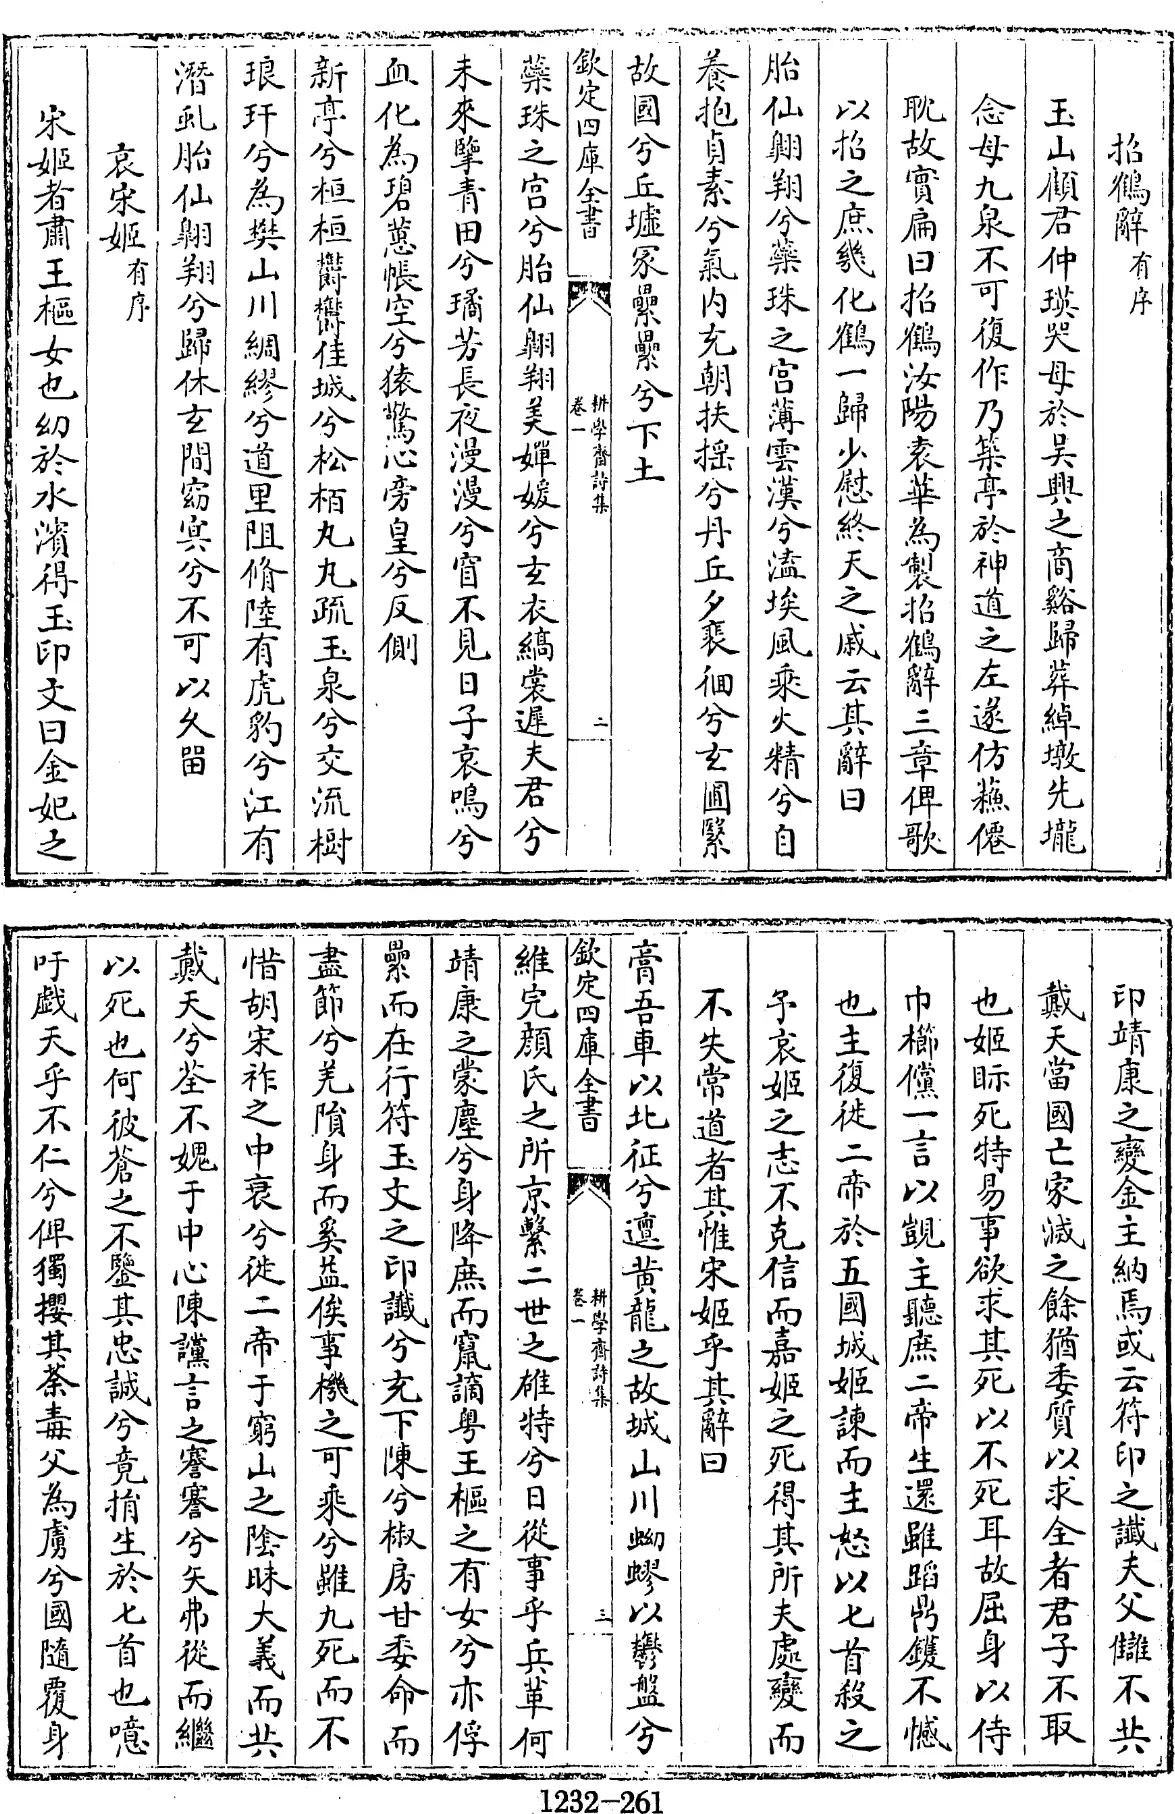 招鶴辭有序
玉山顧君仲瑛哭母於吳興之商谿歸葬綽墩先壠
念母九泉不可復作乃築亭於神道之左遂仿蘇僊
耽故實扁曰招鶴汝陽袁華為製招鶴辭三章俾歌
以招之庶幾化鶴一歸少慰終天之戚云其辭曰
胎仙翺翔兮蘂珠之宫薄雲漢兮溘埃風乘火精兮自
養抱貞素兮氣内充朝扶揺兮丹丘夕裴徊兮玄圃繄
故國兮丘墟冢纍纍兮下土
欽定四庫全書
耕學齋詩集
卷一
二
蘂珠之宫兮胎仙翺翔美嬋媛兮玄衣縞裳遲夫君兮
未來擥青田兮璚芳長夜漫漫兮窅不見日子哀鳴兮
血化為碧蕙帳空兮猿驚心旁皇兮反側
新亭兮桓桓欝欝佳城兮松栢丸丸疏玉泉兮交流樹
琅玕兮為樊山川綢繆兮道里阻脩陸有虎豹兮江有
潛虬胎仙翺翔兮歸休玄間窈㝠兮不可以久留
哀宋姬有序
宋姬者肅王樞女也幼於水濱得玉印文曰金妃之
印靖康之變金主納焉或云符印之讖夫父讎不共
戴天當國亡家滅之餘猶委質以求全者君子不取
也姬眎死特易事欲求其死以不死耳故屈身以侍
巾櫛儻一言以覬主聽庶二帝生還雖蹈鼎鑊不憾
也主復徙二帝於五國城姬諫而主怒以匕首殺之
予哀姬之志不克信而嘉姬之死得其所夫處變而
不失常道者其惟宋姬乎其辭曰
膏吾車以北征兮邅黄龍之故城山川蚴蟉以欝盤兮
欽定四庫全書
耕學齋詩集
卷一
三
維完顔氏之所京繫二世之雄特兮日從事乎兵革何
靖康之蒙塵兮身降庶而竄謫粤王樞之有女兮亦俘
纍而在行符玉文之印讖兮充下陳兮椒房甘委命而
盡節兮羌隕身而奚益俟事機之可乘兮雖九死而不
惜胡宋祚之中衰兮徙二帝于窮山之隂昧大義而共
戴天兮荃不媿于中心陳讜言之謇謇兮矢弗從而繼
以死也何彼蒼之不鑒其忠誠兮竟捐生於匕首也噫
吁戯天乎不仁兮俾獨攖其荼毒父為虜兮國隨覆身
1232-261